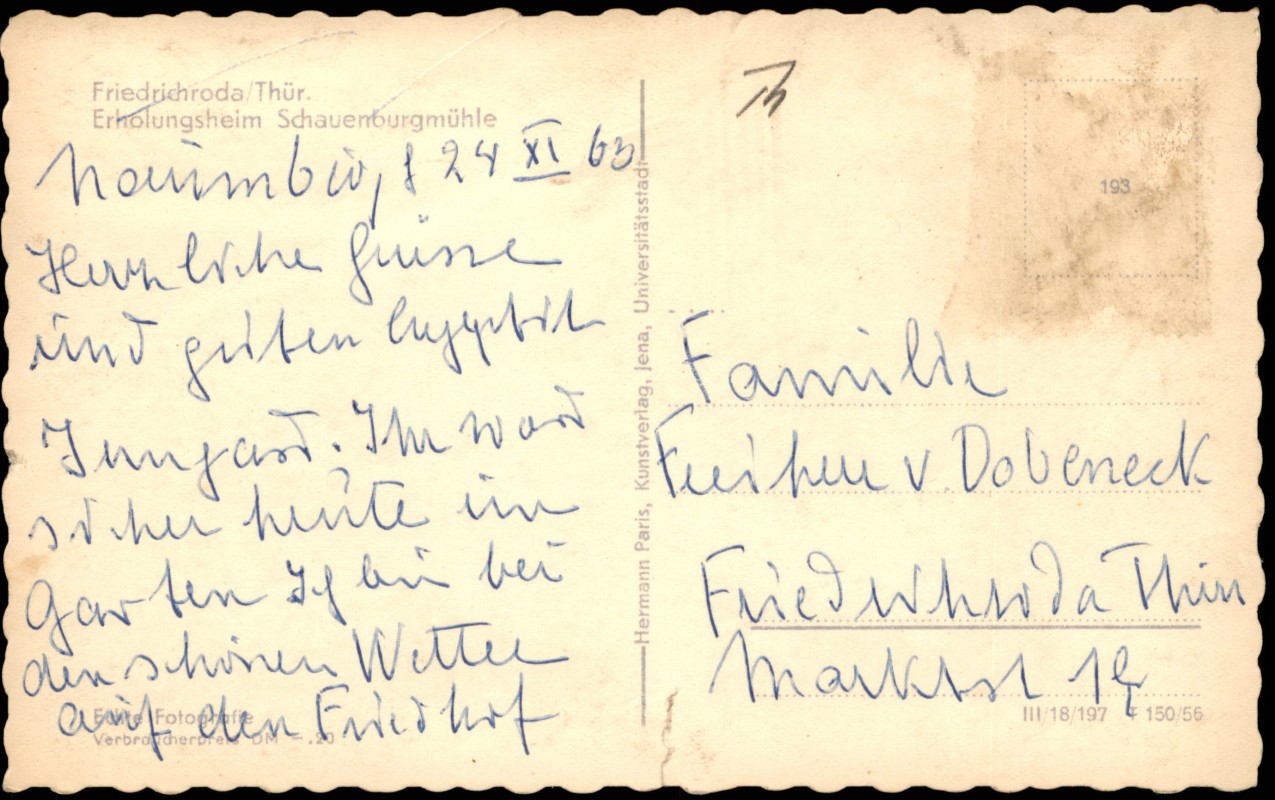 Friedrichroda/Thür.
Erholungsheim Schauenburgmühle
Naumburg, d 24 XI 63
Herzliche Grüsse
und guten
Irmgard. Ihr ward
sicher heute im
Garten Ich bin bei
den schönen Wetter
auf den Friedhof
Echte Fotografie
Verbraucherpreis DM –.20
Hermann Paris, Kunstverlag, Jena, Universitätsstadt
193
Familie
Freiherr v. Dobeneck
Friedrichroda Thür
Marktst
III/18/197 F 150/56